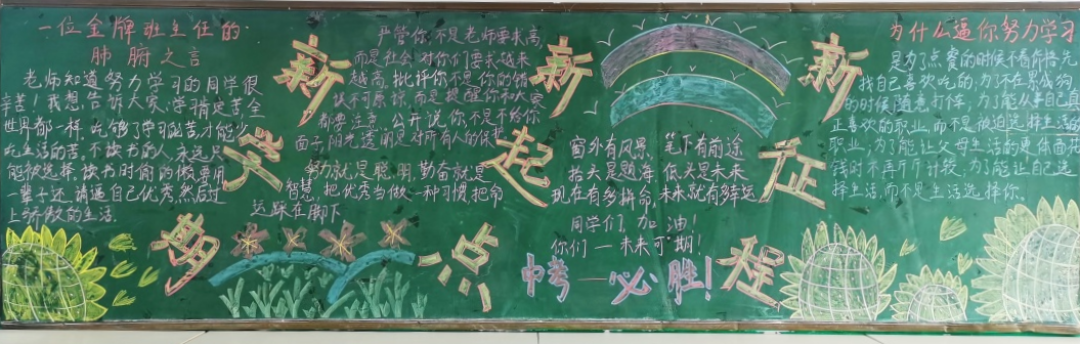 一位金牌班主任的
肺腑之言
老师知道努力学习的同学很
辛苦！我想告诉大家，学习肯定苦全
世界都一样，吃够了学习的苦，才能少
吃生活的苦。不读书的人，永远只
能被选择，读书时偷的懒要用
辈子还，请逼自己优秀然后过
上骄傲的生活。
严管你，不是老师要求高，
而是社会对你们要求越来
越高，批评你不是你的错
误不可原谅，而是提醒你和大家
都要注意。公开说你，不是不给你
面子，阳光透明是对所有人的保护
努力就是聪明，勤奋就是
智慧，把优秀当做一种习惯，把命
运踩在脚下
新
梦
新
起
点
新
征
程
窗外有风景，笔下有前途
抬头是题海，低头是未来
现在有多拼命，未来就有多幸运
同学们，加油！
你们一未来可期！
中考一必胜！
为什么逼你努力学习
是为了点餐的时候不看价格先
找自己喜欢吃的；为了不在累成狗
的时候，随意打车；为了能从事自己真
正喜欢的职业，而不是被迫选择生活的
职业；为了能让父母生活的更体面，花
钱时不再斤斤计较；为了能让自己选
择生活，而不是生活选择你。